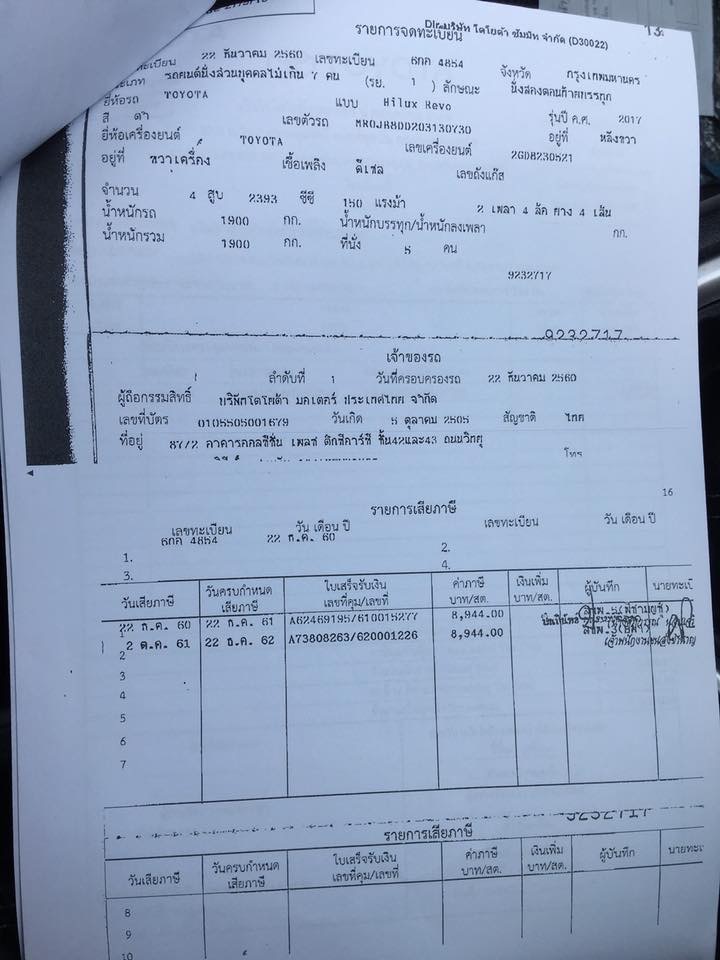 บริษัท โตโยต้า ซัมมิท จำกัด (D30022)
13
รายการจดทะเบียน
22 ธันวาคม 2560 เลขทะเบียน 6กค 4854 จังหวัด กรุงเทพมหานคร
รถยนต์นั่งส่วนบุคคลไม่เกิน 7 คน (รย. 1 ) ลักษณะ นั่งสองตอนท้ายบรรทุก
ยี่ห้อรถ TOYOTA แบบ Hilux Revo รุ่นปี ค.ศ. 2017
สี ดำ เลขตัวรถ MR0JR8DD203130730 อยู่ที่ หลังขวา
ยี่ห้อเครื่องยนต์ TOYOTA เลขเครื่องยนต์ 2GD8230521
อยู่ที่ ขวาเครื่อง เชื้อเพลิง ดีเซล เลขถังแก๊ส
จำนวน 4 สูบ 2393 ซีซี 150 แรงม้า 2 เพลา 4 ล้อ ยาง 4 เส้น
น้ำหนักรถ 1900 กก. น้ำหนักบรรทุก/น้ำหนักลงเพลา กก.
น้ำหนักรวม 1900 กก. ที่นั่ง 5 คน
9232717
9232717
เจ้าของรถ
ลำดับที่ 1 วันที่ครอบครองรถ 22 ธันวาคม 2560
ผู้ถือกรรมสิทธิ์ บริษัทโตโยต้า มอเตอร์ ประเทศไทย จำกัด
เลขที่บัตร 0105505001679 วันเกิด 5 ตุลาคม 2505 สัญชาติ ไทย
ที่อยู่ 87/2 อาคารออลซีซั่น เพลซ ตึกซีอาร์ซี ชั้น42และ43 ถนนวิทยุ
โทร
16
รายการเสียภาษี
เลขทะเบียน วัน เดือน ปี เลขทะเบียน วัน เดือน ปี
1. 6กค 4854 22 ธ.ค. 60 2.
3. 4.
วันเสียภาษี วันครบกำหนดเสียภาษี ใบเสร็จรับเงิน เลขที่คุม/เลขที่ ค่าภาษี บาท/สต. เงินเพิ่ม บาท/สต. ผู้บันทึก นายทะเบี
22 ธ.ค. 60 22 ธ.ค. 61 A62469195/610015277 8,944.00
1
2 ต.ค. 61 22 ธ.ค. 62 A73808263/620001226 8,944.00
2
3
4
5
6
7
9232717
รายการเสียภาษี
วันเสียภาษี วันครบกำหนดเสียภาษี ใบเสร็จรับเงิน เลขที่คุม/เลขที่ ค่าภาษี บาท/สต. เงินเพิ่ม บาท/สต. ผู้บันทึก นายทะเบ
8
9
10